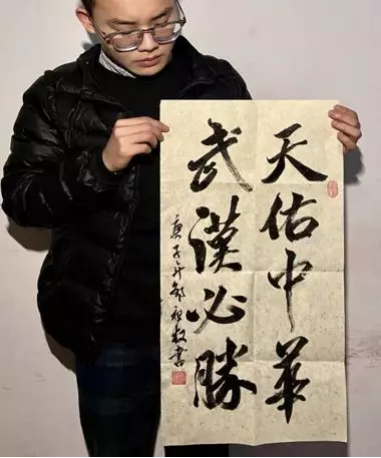 天佑中華
武漢必勝
庚子年書